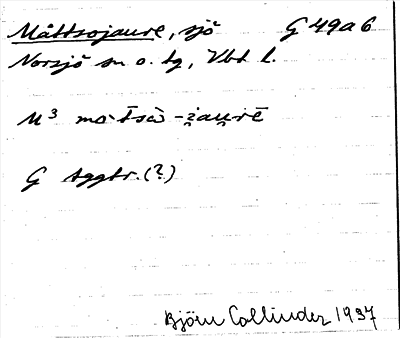 Måttsojaure, sjö G 49a6
Norsjö sn o. tg, Vbt l.
M³
G tggtr. (?)
Björn Collinder 1937